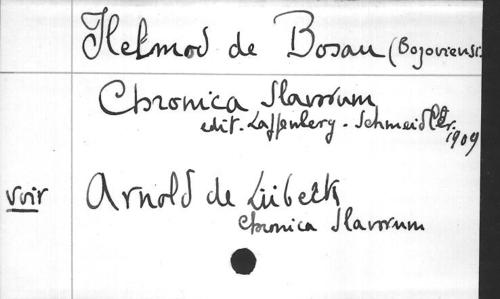 Helmod de Bosau (Bozoviensi
Chronica Slavorum
edit. Lappenberg - Schmeidler.
1909
voir Arnold de Lübeck
Chronica Slavorum